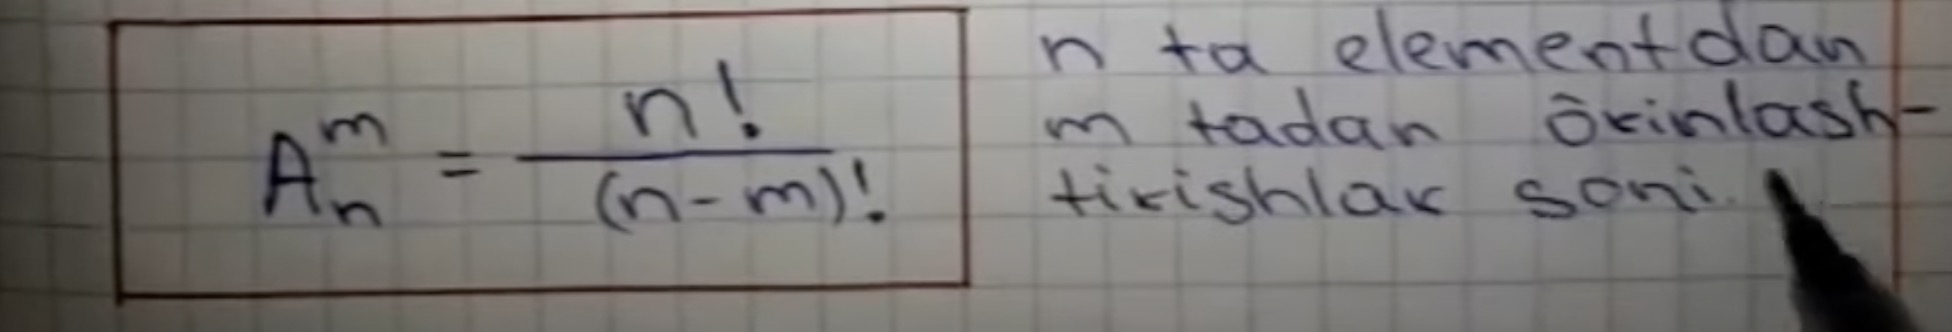 A_n^m = n! / (n-m)!
n ta elementdan
m tadan õrinlash-
tirishlar soni.